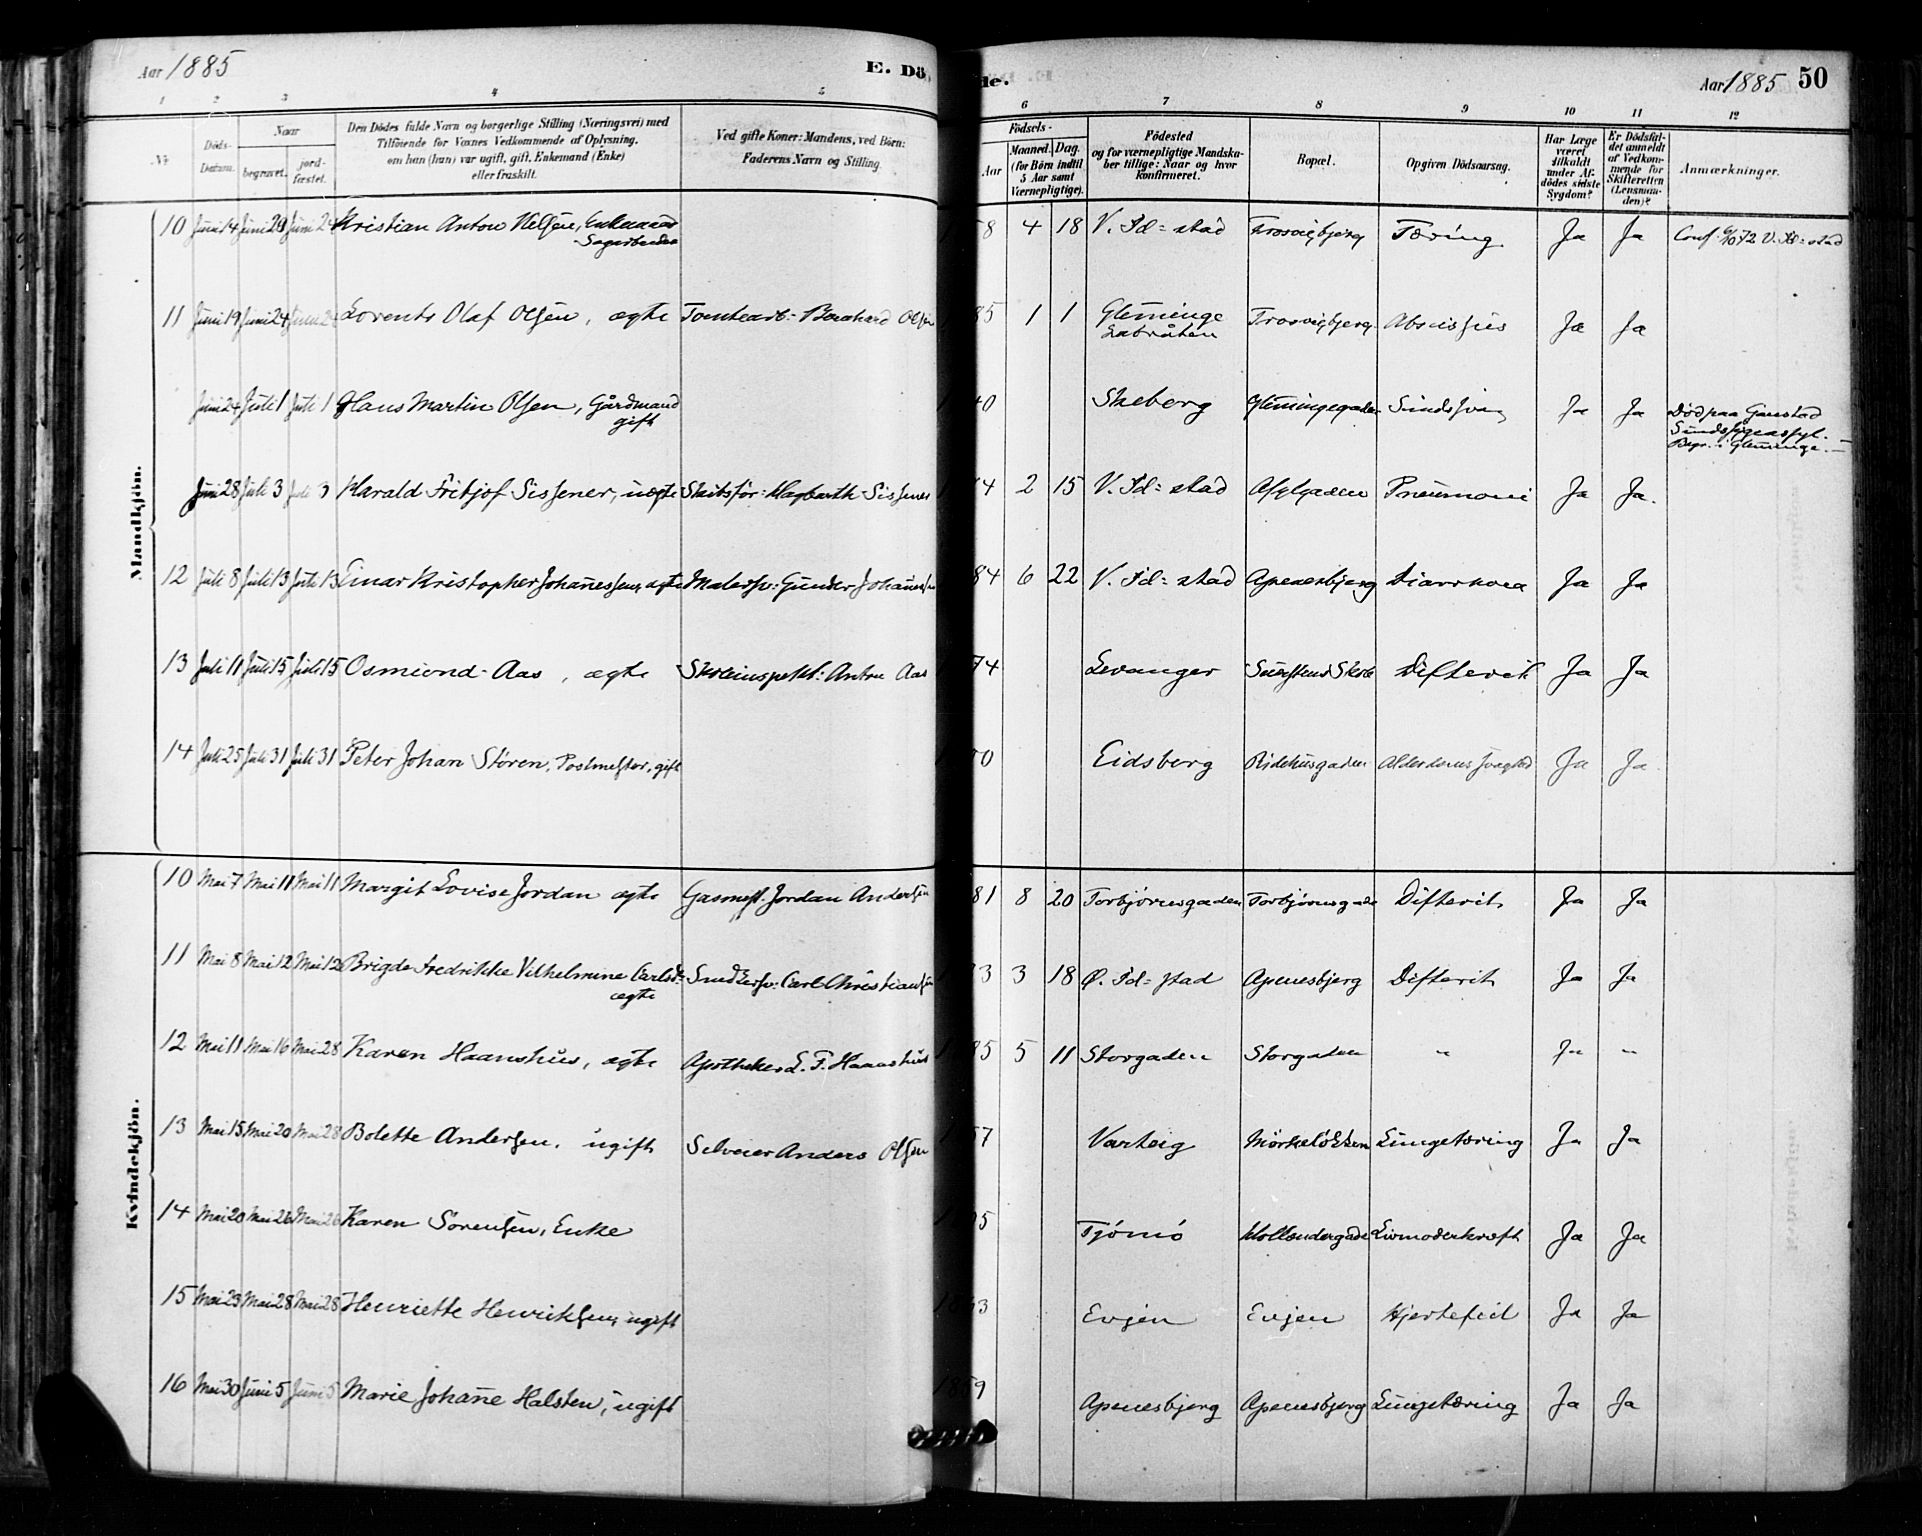 Aar 1885
E. Dö
de.
Aar 1885 50
1 2 3 4 5 6 7 8 9 10 11 12
Nr
Döds-Datum.
Naar
begravet.
jordfæstet.
Den Dödes fulde Navn og borgerlige Stilling (Næringsvei) med
Tilföiende for Voxnes Vedkommende af Oplysning,
om han (hun) var ugift, gift, Enkemand (Enke)
eller fraskilt.
Ved gifte Koner: Mandens, ved Börn:
Faderens Navn og Stilling
Födsels-
Aar
Maaned. Dag.
(for Börn indtil
5 Aar samt
Værnepligtige).
Födested
og for værnepligtige Mandskaber tillige: Naar og hvor
konfirmeret.
Bopæl.
Opgiven Dödsaarsag.
Har Læge
været
tilkaldt
under Afdödes sidste
Sygdom?
Er Dödsfaldet anmeldt
af Vedkommende for
Skifteretten
(Lensmanden)?
Anmærkninger.
Mandkjön.
10 Juni 14 Juni 20 Juni 24 Kristian Anton Nelsen, Enkemand 58 4 18 V. Fd=stad Trosvigbjerg Tæring Ja Ja Conf. 6/10 72 V. Fd=stad
Sagarbeider
11 Juni 19 Juni 24 Juni 24 Lorents Olaf Olsen, ægte Tomtearb: Bernhard Olsen 85 1 1 Glemminge Trosvigbjerg Abscissus Ja Ja
Labråten
Juni 24 Juli 1 Juli 1 Hans Martin Olsen, Gårdmand 40 Skeberg Glemmingegaden Ja Ja Död paa Gaustad
gift Sindssygeasyl.
Begr. i Glemminge.
Juni 28 Juli 3 Juli 3 Harald Fritjof Sissener, uægte Skibsfør: Hagbarth Sissener 74 2 15 V. Fd=stad Pneumoni Ja Ja.
12 Juli 8 Juli 13 Juli 13 Einar Kristopher Johannessen, ægte Malersv: Gunder Johannessen 84 6 22 V. Fd=stad Apenesbjerg Diarrhoea Ja Ja
13 Juli 11 Juli 15 Juli 15 Osmund Aas, ægte Skoleinspekt: Anton Aas 74 Levanger Difterit Ja Ja
14 Juli 25 Juli 31 Juli 31 Peter Johan Stören, Postmester, gift Eidsberg Ridehusgaden Alderdomssvaghed Ja Ja
Kvindekjön.
10 Mai 7 Mai 11 Mai 11 Margit Lovise Jordan ægte Gasmest. Jordan Andersen 81 8 20 Torbjørnsgaden Torbjørnsgade Difterit Ja Ja
11 Mai 8 Mai 12 Mai 12 Brigde Fredrikke Vilhelmine Carlsd: Smedsv: Carl Christiansen 3 3 18 Ø. Fd=stad Apenesbjerg Difterit Ja Ja
ægte
12 Mai 11 Mai 16 Mai 28 Karen Haanshus, ægte Apotheker L. F. Haanshus 85 5 11 Storgaden Storgaden " Ja "
13 Mai 15 Mai 20 Mai 28 Bolette Andersen, ugift Selveier Anders Olsen 57 Varteig Mörkelökken Lungetæring Ja Ja
14 Mai 20 Mai 26 Mai 26 Karen Sörensen, Enke Tjömö Hollendergade Livmoderkræft Ja Ja
15 Mai 23 Mai 28 Mai 28 Henriette Henriksen, ugift Evjen Evjen Hjertefeil Ja Ja
16 Mai 30 Juni 5 Juni 5 Marie Johanne Halsten, ugift 1859 Apenesbjerg Apenesbjerg Lungetæring Ja Ja